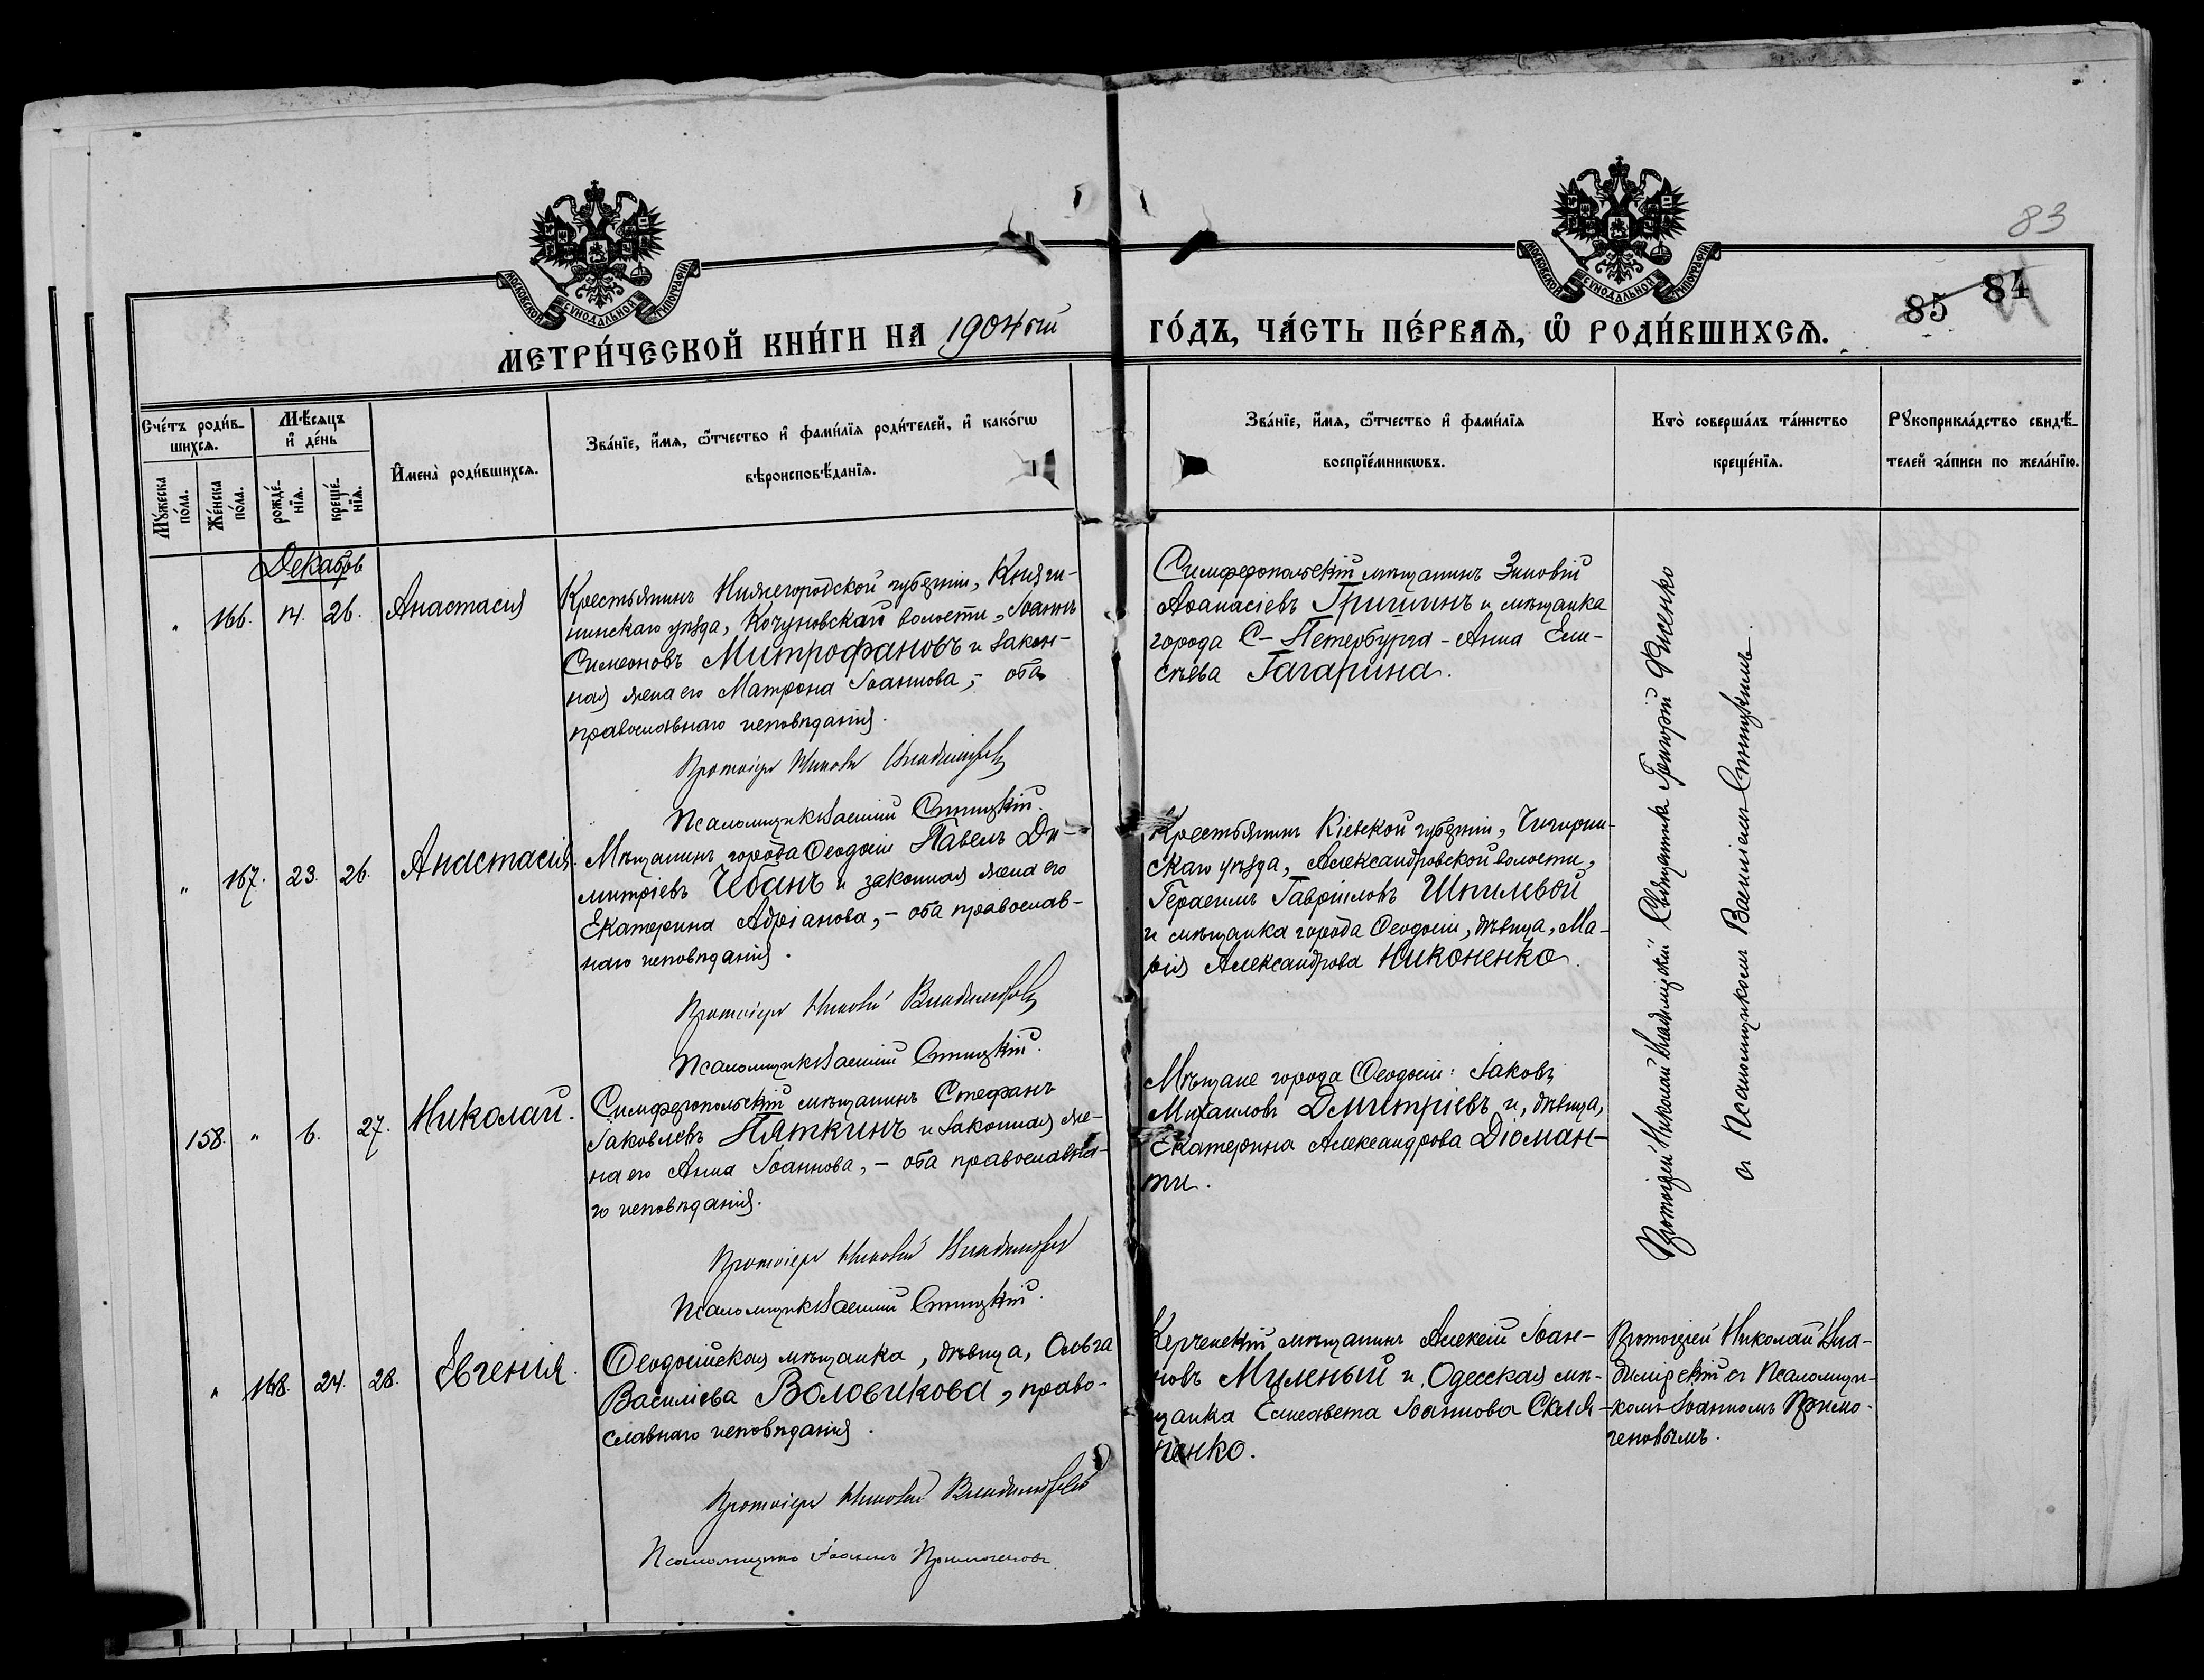 83
85 84
МОСКОВСКОЙ СѴНОДАЛЬНОЙ ТИПОГРАФІИ.
МОСКОВСКОЙ СѴНОДАЛЬНОЙ ТИПОГРАФІИ.
МЕТРИ́ЧЕСКОЙ КНИ́ГИ НА 1904 ый ГО́ДЪ, ЧА́СТЬ ПЕ́РВАѦ, Ѿ РОДИ́ВШИХСѦ.
Сче́тъ роди́в-
шихсѧ.
Мꙋ́жеска по́ла.
Же́нска по́ла.
Мѣ́сѧцъ и҆ де́нь
рожде́-нїѧ.
креще́-нїѧ.
И҆мена̀ роди́вшихсѧ.
Зва́нїе, и҆́мѧ, ѻ҆́тчество и҆ фами́лїѧ роди́телей, и҆ како́гѡ
вѣроисповѣ́данїѧ.
Зва́нїе, и҆́мѧ, ѻ҆́тчество и҆ фами́лїѧ
воспрїе́мникѡвъ.
Кто̀ соверша́лъ та́инство
креще́нїѧ.
Рꙋкоприкла́дство свидѣ́-
телей за́писи по жела́нїю.
Декабрь
" 166. 14. 26. Анастасія
Крестьянинъ Нижегородской губерніи, Княги-
нинскаго уѣзда, Кочуновской волости, Іоаннъ
Симеоновъ Митрофановъ и закон-
ная жена его Матрона Іоаннова, – оба
православнаго исповѣданія.
Протоіерей Николай Владимірскій
Псаломщикъ Василій
Симферопольскій мѣщанинъ Зиновій
Аѳанасіевъ Гришинъ и мѣщанка
города С-Петербурга - Анна Ели-
сѣева Гагарина.
" 167. 23. 26. Анастасія
Мѣщанинъ города Ѳеодосіи Павелъ Ди-
митріевъ Чебанъ и законная жена его
Екатерина Адріанова, – оба православ-
наго исповѣданія.
Протоіерей Николай Владимірскій
Псаломщикъ Василій
Крестьянинъ Кіевской губерніи, Чигирин-
скаго уѣзда, Александровской волости,
Герасимъ Гавріиловъ Шпилевой
и мѣщанка города Ѳеодосіи, дѣвица, Ма-
рія Александрова Никоненко.
158. " 6. 27. Николай.
Симферопольскій мѣщанинъ Стефанъ
Іаковлевъ Пяткинъ и законная же-
на его Анна Іоаннова, – оба православна-
го исповѣданія.
Протоіерей Николай Владимірскій
Псаломщикъ Василій
Мѣщане города Ѳеодосіи: Іаковъ
Михаиловъ Дмитріевъ и, дѣвица,
Екатерина Александрова Діоман-
ти.
Протоіерей Николай Владимірскій Священникъ Григорій Фисенко
съ Псаломщикомъ Василіемъ
" 168. 24. 28. Евгенія.
Ѳеодосійская мѣщанка, дѣвица, Ольга
Василіева Воловикова, право-
славнаго исповѣданія.
Протоіерей Николай Владимірскій
Псаломщикъ Іоаннъ Примогеновъ
Керченскій мѣщанинъ Алексій Іоан-
новъ Муленый и, Одесская мѣ-
щанка Елисавета Іоаннова Скля-
ренко.
Протоіерей Николай Вла-
димірскій съ Псаломщи-
комъ Іоанномъ Примо-
геновымъ.